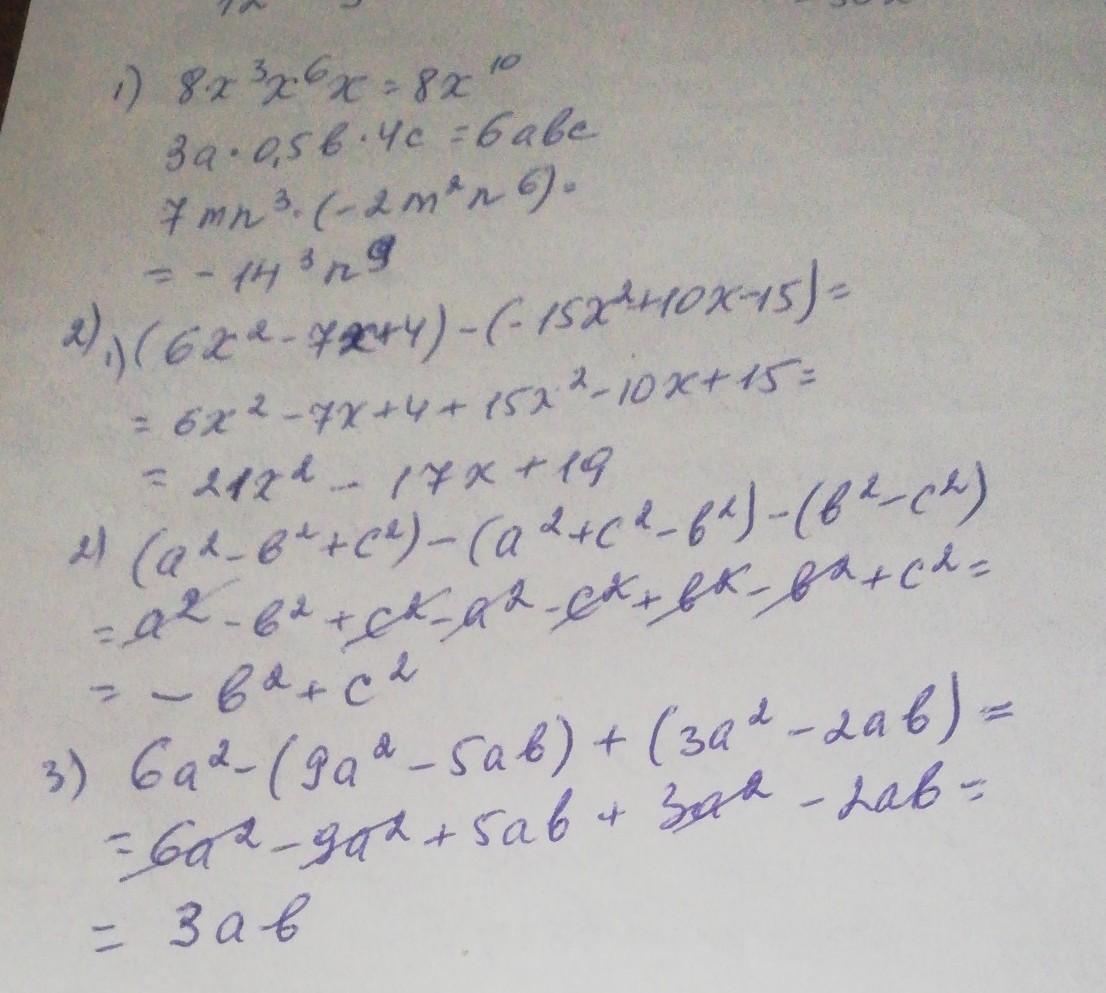 1) 8x³x⁶x = 8x¹⁰
3a · 0,5b · 4c = 6abc
7mn³ · (-2m²n⁶) =
= -14³n⁹
2) 1) (6x² - 7x + 4) - (-15x² + 10x - 15) =
= 6x² - 7x + 4 + 15x² - 10x + 15 =
= 21x² - 17x + 19
2) (a² - b² + c²) - (a² + c² - b²) - (b² - c²)
= a² - b² + c² - a² - c² + b² - b² + c² =
= - b² + c²
3) 6a² - (9a² - 5ab) + (3a² - 2ab) =
= 6a² - 9a² + 5ab + 3a² - 2ab =
= 3ab